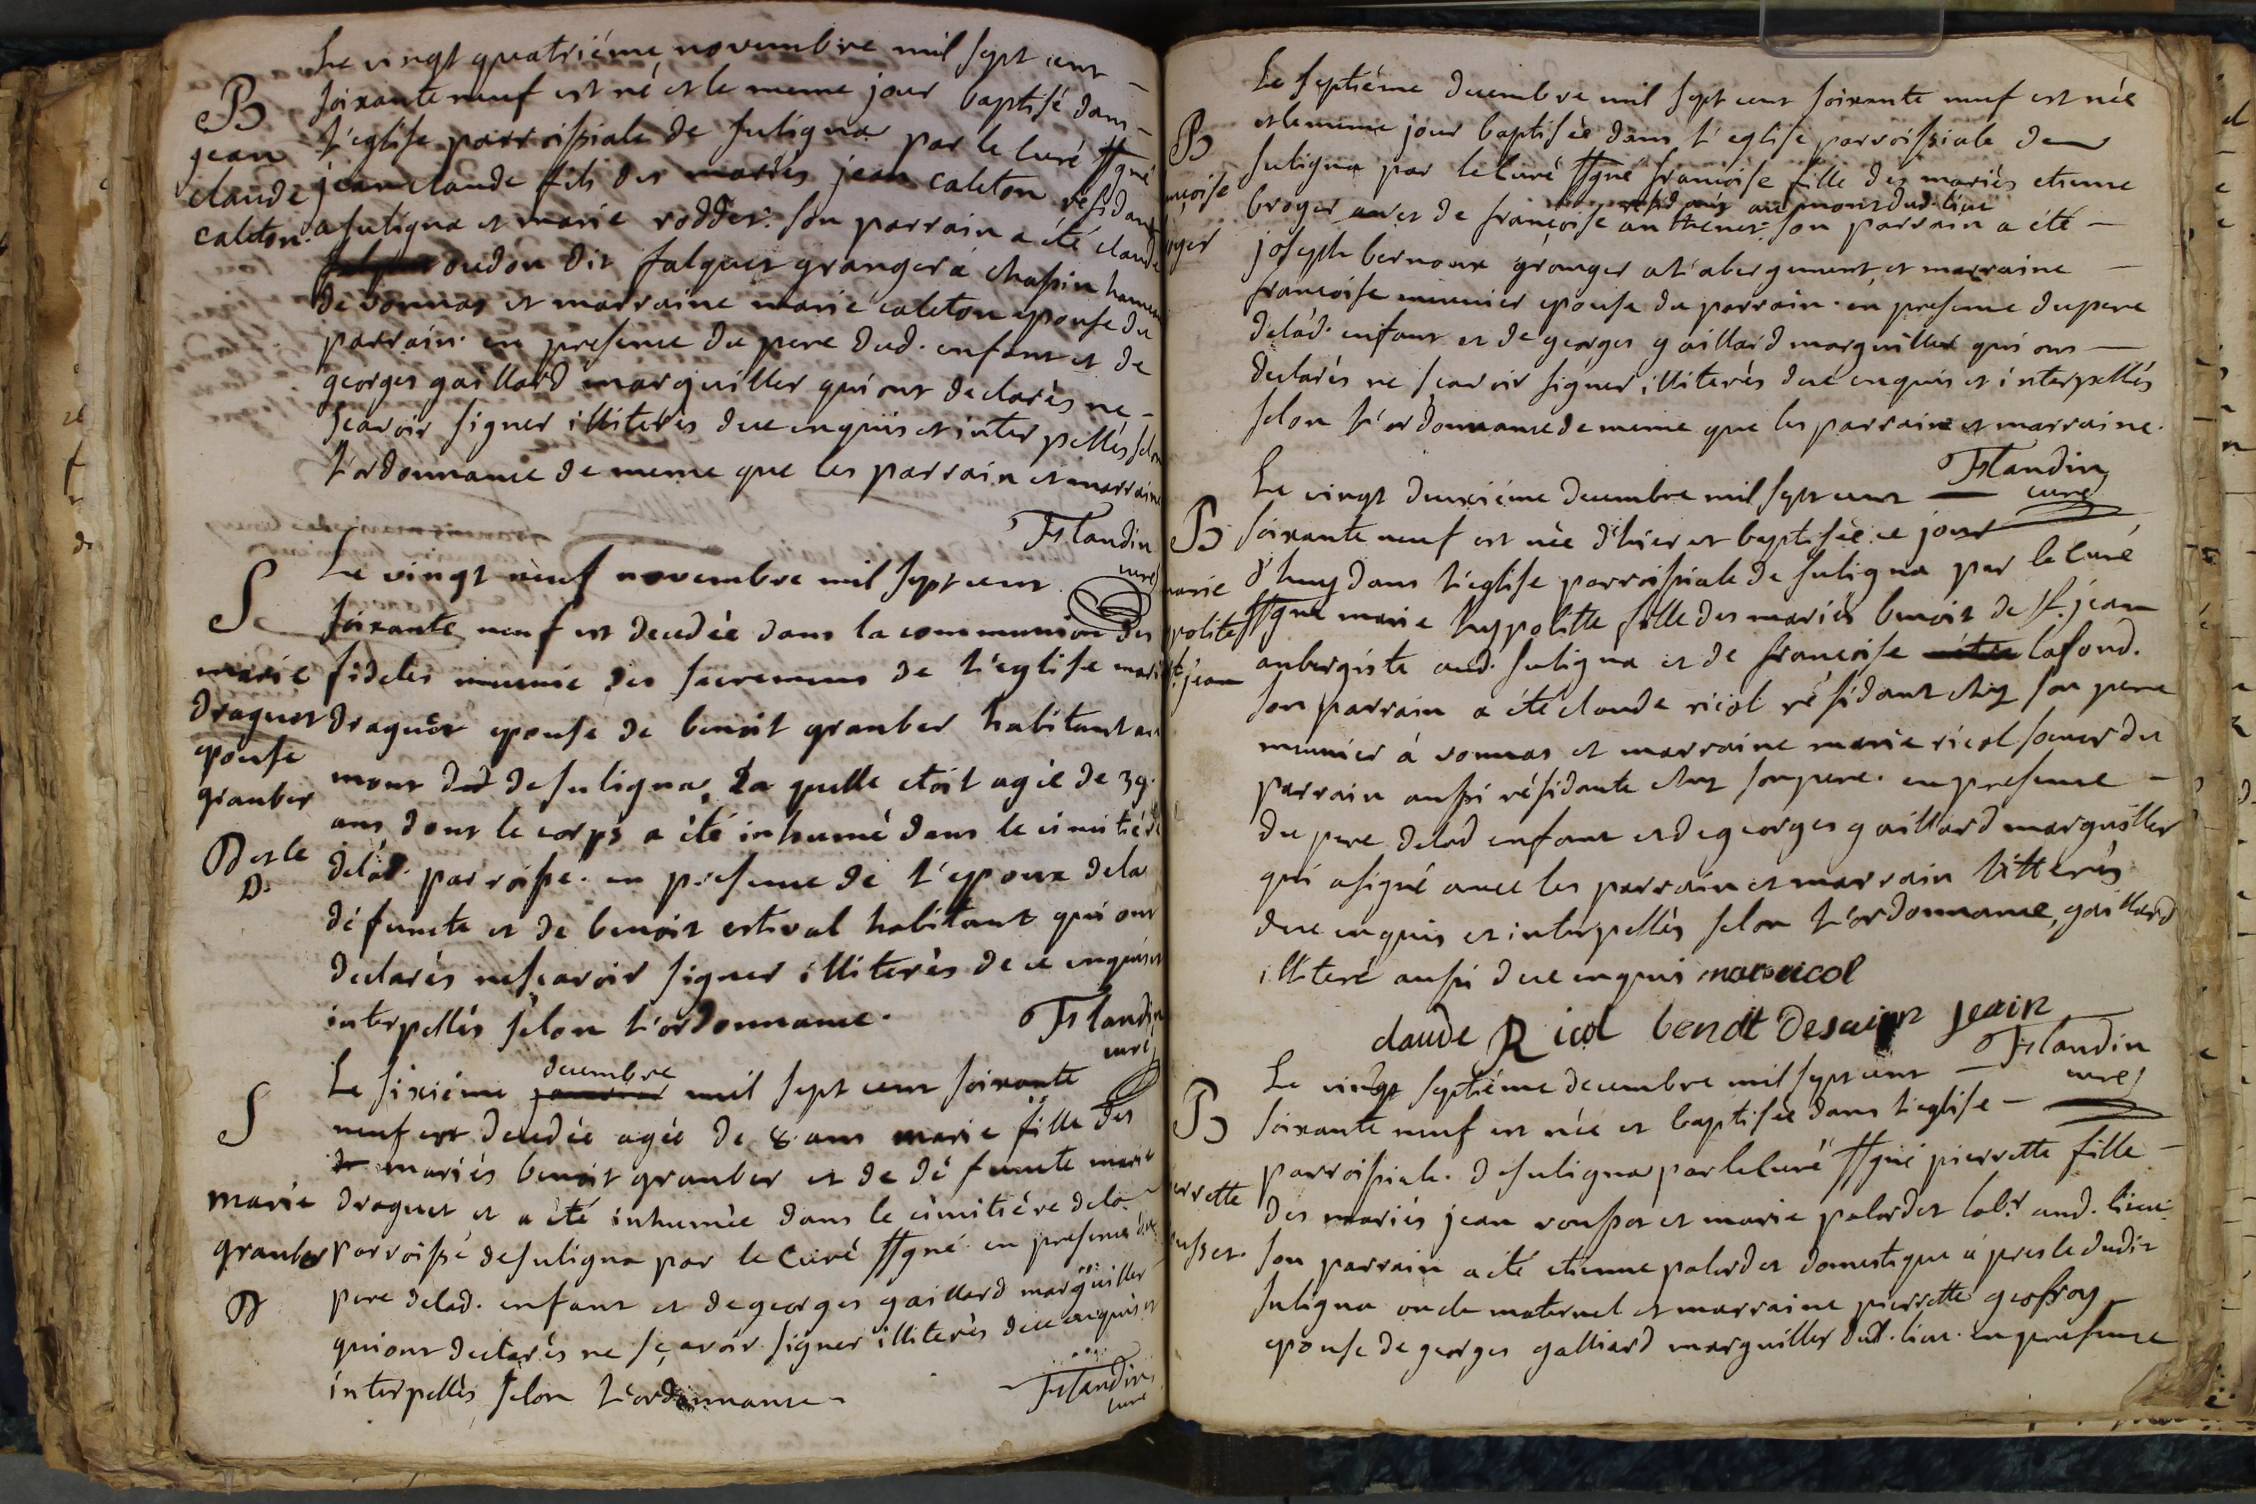 Le vingt quatriéme novembre mil sept cent
soixante neuf est né et le meme jour baptisé dans
B
l'eglise parroissiale de suligna par le curé ssgné
jean
claude
caleton.
jean claude fils des mariés jean caleton résidant
a suligna et marie roddet. son parrain a été claude
oudon dit falquet granger à chassin hameau
de vonnas et marraine marie caleton epouse du
parrain. en presence du pere dud. enfant et de
georges gaillard marguiller qui ont declarés ne
sçavoir signer illiterés de ce enquis et interpellés selon
l'ordonnance de meme que les parrain et marraine
Flandin
curé
Le vingt neuf novembre mil sept cent
S
soixante neuf est decedée dans la communion des
marie
draguet
epouse
grauber
fideles munie des sacremens de l'eglise marie
draguet epouse de benoit grauber habitant au
mont dud de suligna, la quelle etoit agée de 39.
ans, dont le corps a été inhumé dans le cimitiére
delad. parroisse. en presence de l'epoux dela
défuncte et de benoit estival habitant qui ont
declarés ne sçavoir signer illiterés de ce enquis et
interpellés selon l'ordonnance.
Flandin
curé
decembre
Le sixiéme mil sept cent soixante
S
neuf est decedée agée de 8. ans marie fille des
mariés benoit grauber et de défuncte marie
marie
grauber
draguet et a été inhumée dans le cimitiére dela
parroisse de suligna par le curé ssgné en presence du
pere delad. enfant et de georges gaillard marguiller
qui ont declarés ne sçavoir signer illiterés de ce enquis et
interpellés selon l'ordonnance
Flandin
curé
Le septiéme decembre mil sept cent soixante neuf est née
et le meme jour baptisée dans l'eglise parroissiale de
B
suligna par le curé ssgné francoise fille des mariés etienne
résidant au mont dud. lieu
broger et de françoise anthenet. son parrain a été
joseph bernoux granger a l'abergement et marraine
francoise meunier epouse du parrain. en presence du pere
delad. enfant et de georges gaillard marguiller qui ont
declarés ne sçavoir signer illiterés de ce enquis et interpellés
selon l'ordonnance de meme que les parrain et marraine.
Flandin
curé
Le vingt deuxiéme decembre mil sept cent
B
soixante neuf est née d'hier et baptisée ce jour
d'huy dans l'eglise parroissiale de suligna par le curé
ssgné marie hyppolitte fille des mariés benoit de st. jean
aubergiste aud. suligna et de francoise lafond.
son parrain a été claude ricol résidant chez son pere
meunier à vonnas et marraine marie ricol soeur du
parrain aussi résidante chez son pere. en presence
du pere delad enfant et de georges gaillard marguiller
qui a signé avec les parrain et marrain litterés
de ce enquis et interpellés selon l'ordonnance, gaillard
illiteré aussi de ce enquis
claude Ricol benoit Desaint jean
Flandin
curé
Le vingt septiéme decembre mil sept cent
B
soixante neuf est née et baptisée dans l'eglise
parroissiale. de suligna par le curé ssgné pierrette fille
des mariés jean rousset et marie palordet lab.r aud. lieu.
son parrain a été etienne palordet domestique à presle dudit
suligna oncle maternel et marraine pierrette geoffroy
epouse de georges galliard marguiller dud. lieu. en presence